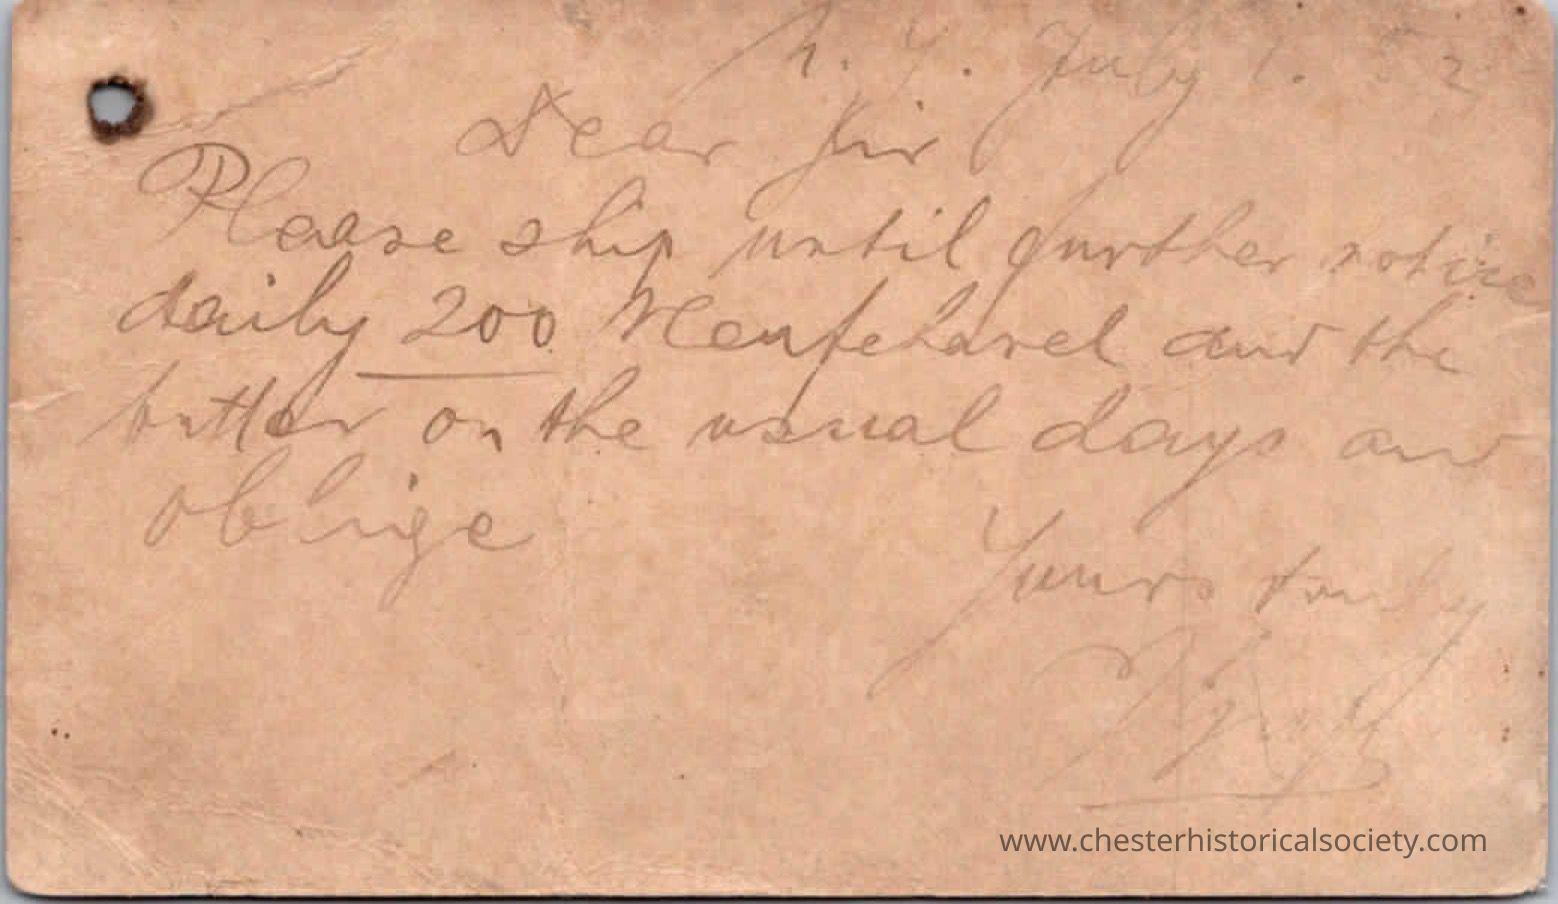 N. Y. July 1. 82
Dear Sir
Please ship until further notice
daily 200 Neufchatel and the
butter on the usual days and
oblige
Yours truly
www.chesterhistoricalsociety.com